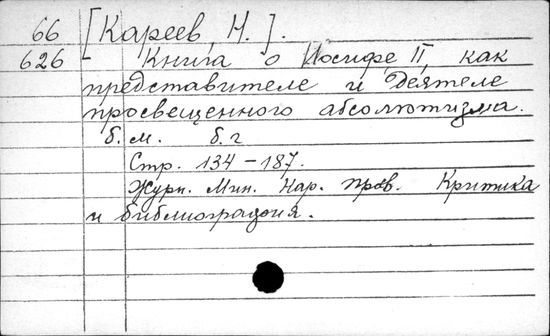 66 [Кареев, Н.].
626 Книга о Иосифе II, как
представителе и деятеле
просвещенного абсолютизма.
б. м. б. г
Стр. 134-187.
Журн. Мин. Нар. пров. Критика
и библиография.